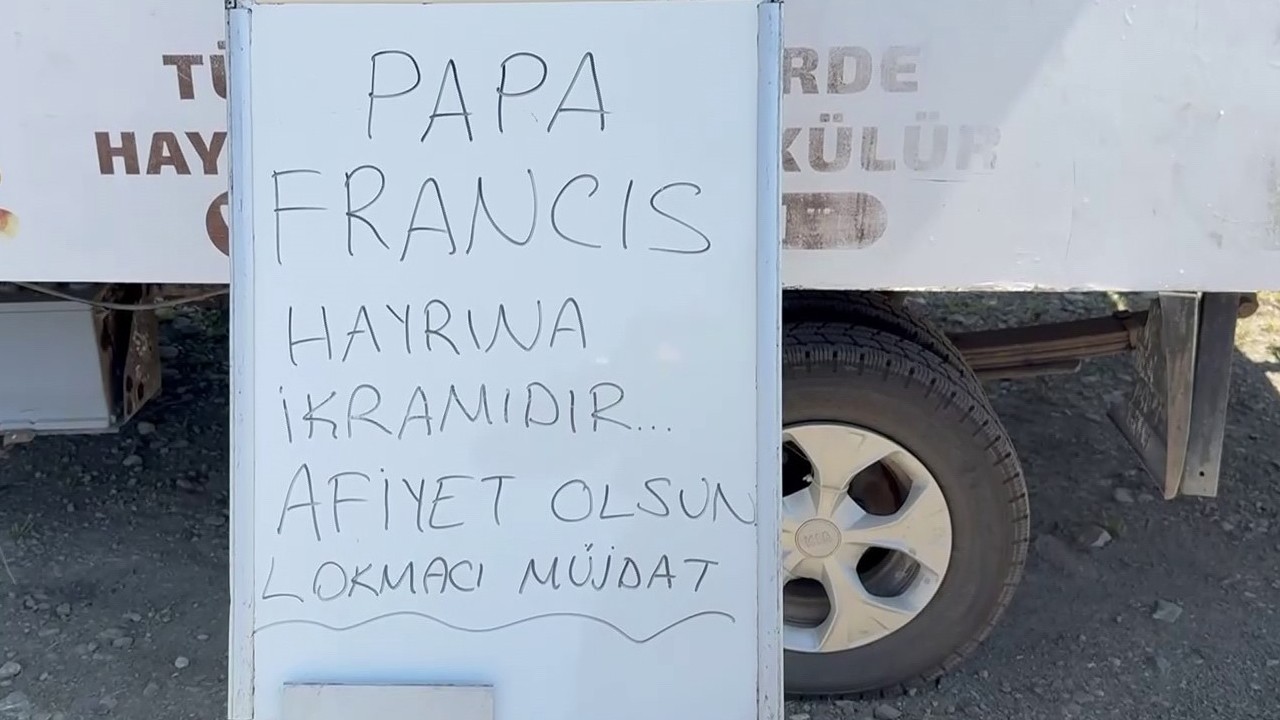 PAPA
FRANCIS
HAYRINA
İKRAMIDIR...
AFİYET OLSUN
LOKMACI MÜJDAT
TÜ RDE
HAY KÜLÜR